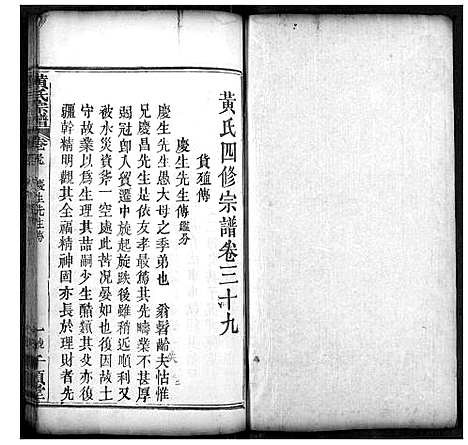 黃氏四修宗譜卷三十九
貨殖傳
慶生先生傳鑑芬
慶生先生愚大母之季弟也 翁髫齡失怙惟
兄慶昌先生是依友孝最摯其先疇業不甚厚
弱冠卽入貿遷中旋起旋跌後雖稍近順境復
被水災資斧一空處此苦況晏如也後因故土
守故業以爲生理其喆嗣少生酷類其父亦復
疆幹精明觀其全福精神固亦長於理財者先
黃氏宗譜
慶生先生傳
一
千頃堂